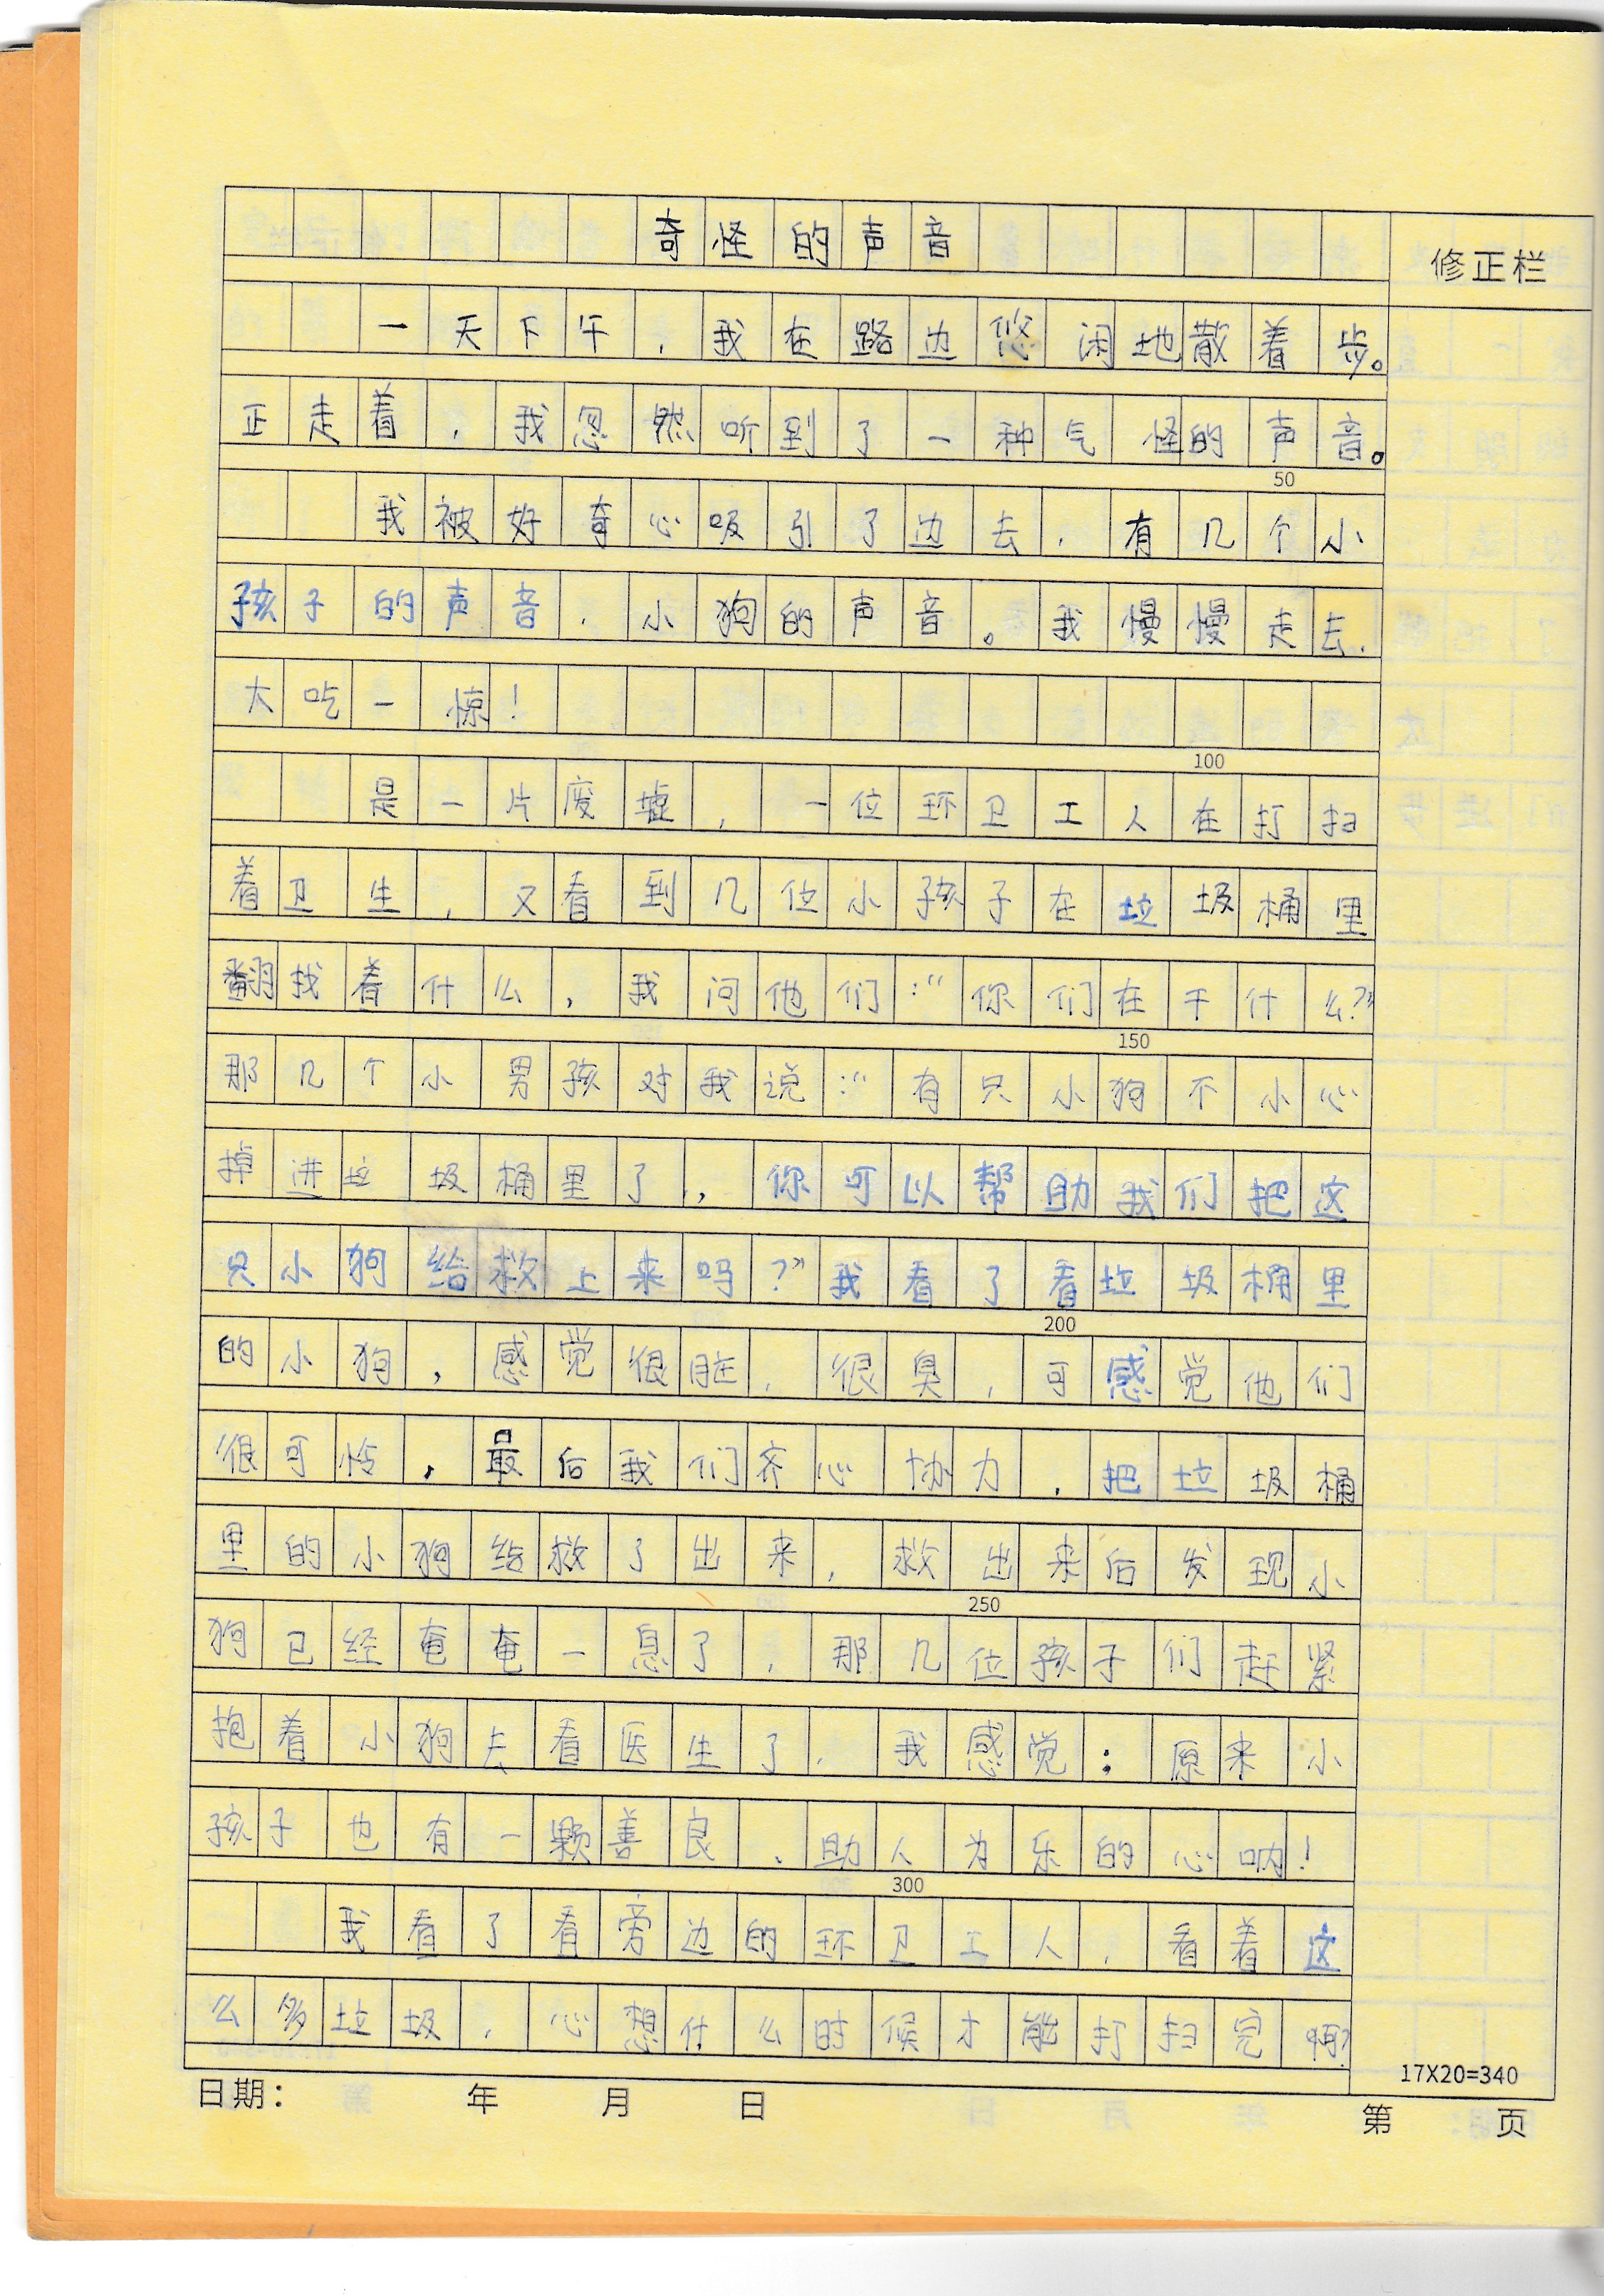 奇怪的声音
修正栏
一天下午，我在路边悠闲地散着步。
正走着，我忽然听到了一种气怪的声音。
50
我被好奇心吸引了边去，有几个小
孩子的声音，小狗的声音。我慢慢走去，
大吃一惊！
100
是一片废墟，一位环卫工人在打扫
着卫生，又看到几位小孩子在垃圾桶里
翻找着什么，我问他们：“你们在干什么？”
150
那几个小男孩对我说：“有只小狗不小心
掉进垃圾桶里了，你可以帮助我们把这
只小狗给救上来吗？”我看了看垃圾桶里
200
的小狗，感觉很脏，很臭，可感觉他们
很可怜，最后我们齐心协力，把垃圾桶
里的小狗给救了出来，救出来后发现小
250
狗已经奄奄一息了，那几位孩子们赶紧
抱着小狗去看医生了，我感觉：原来小
孩子也有一颗善良、助人为乐的心呐！
300
我看了看旁边的环卫工人，看着这
么多垃圾，心想什么时候才能打扫完啊？
17X20=340
日期： 年 月 日
第 页